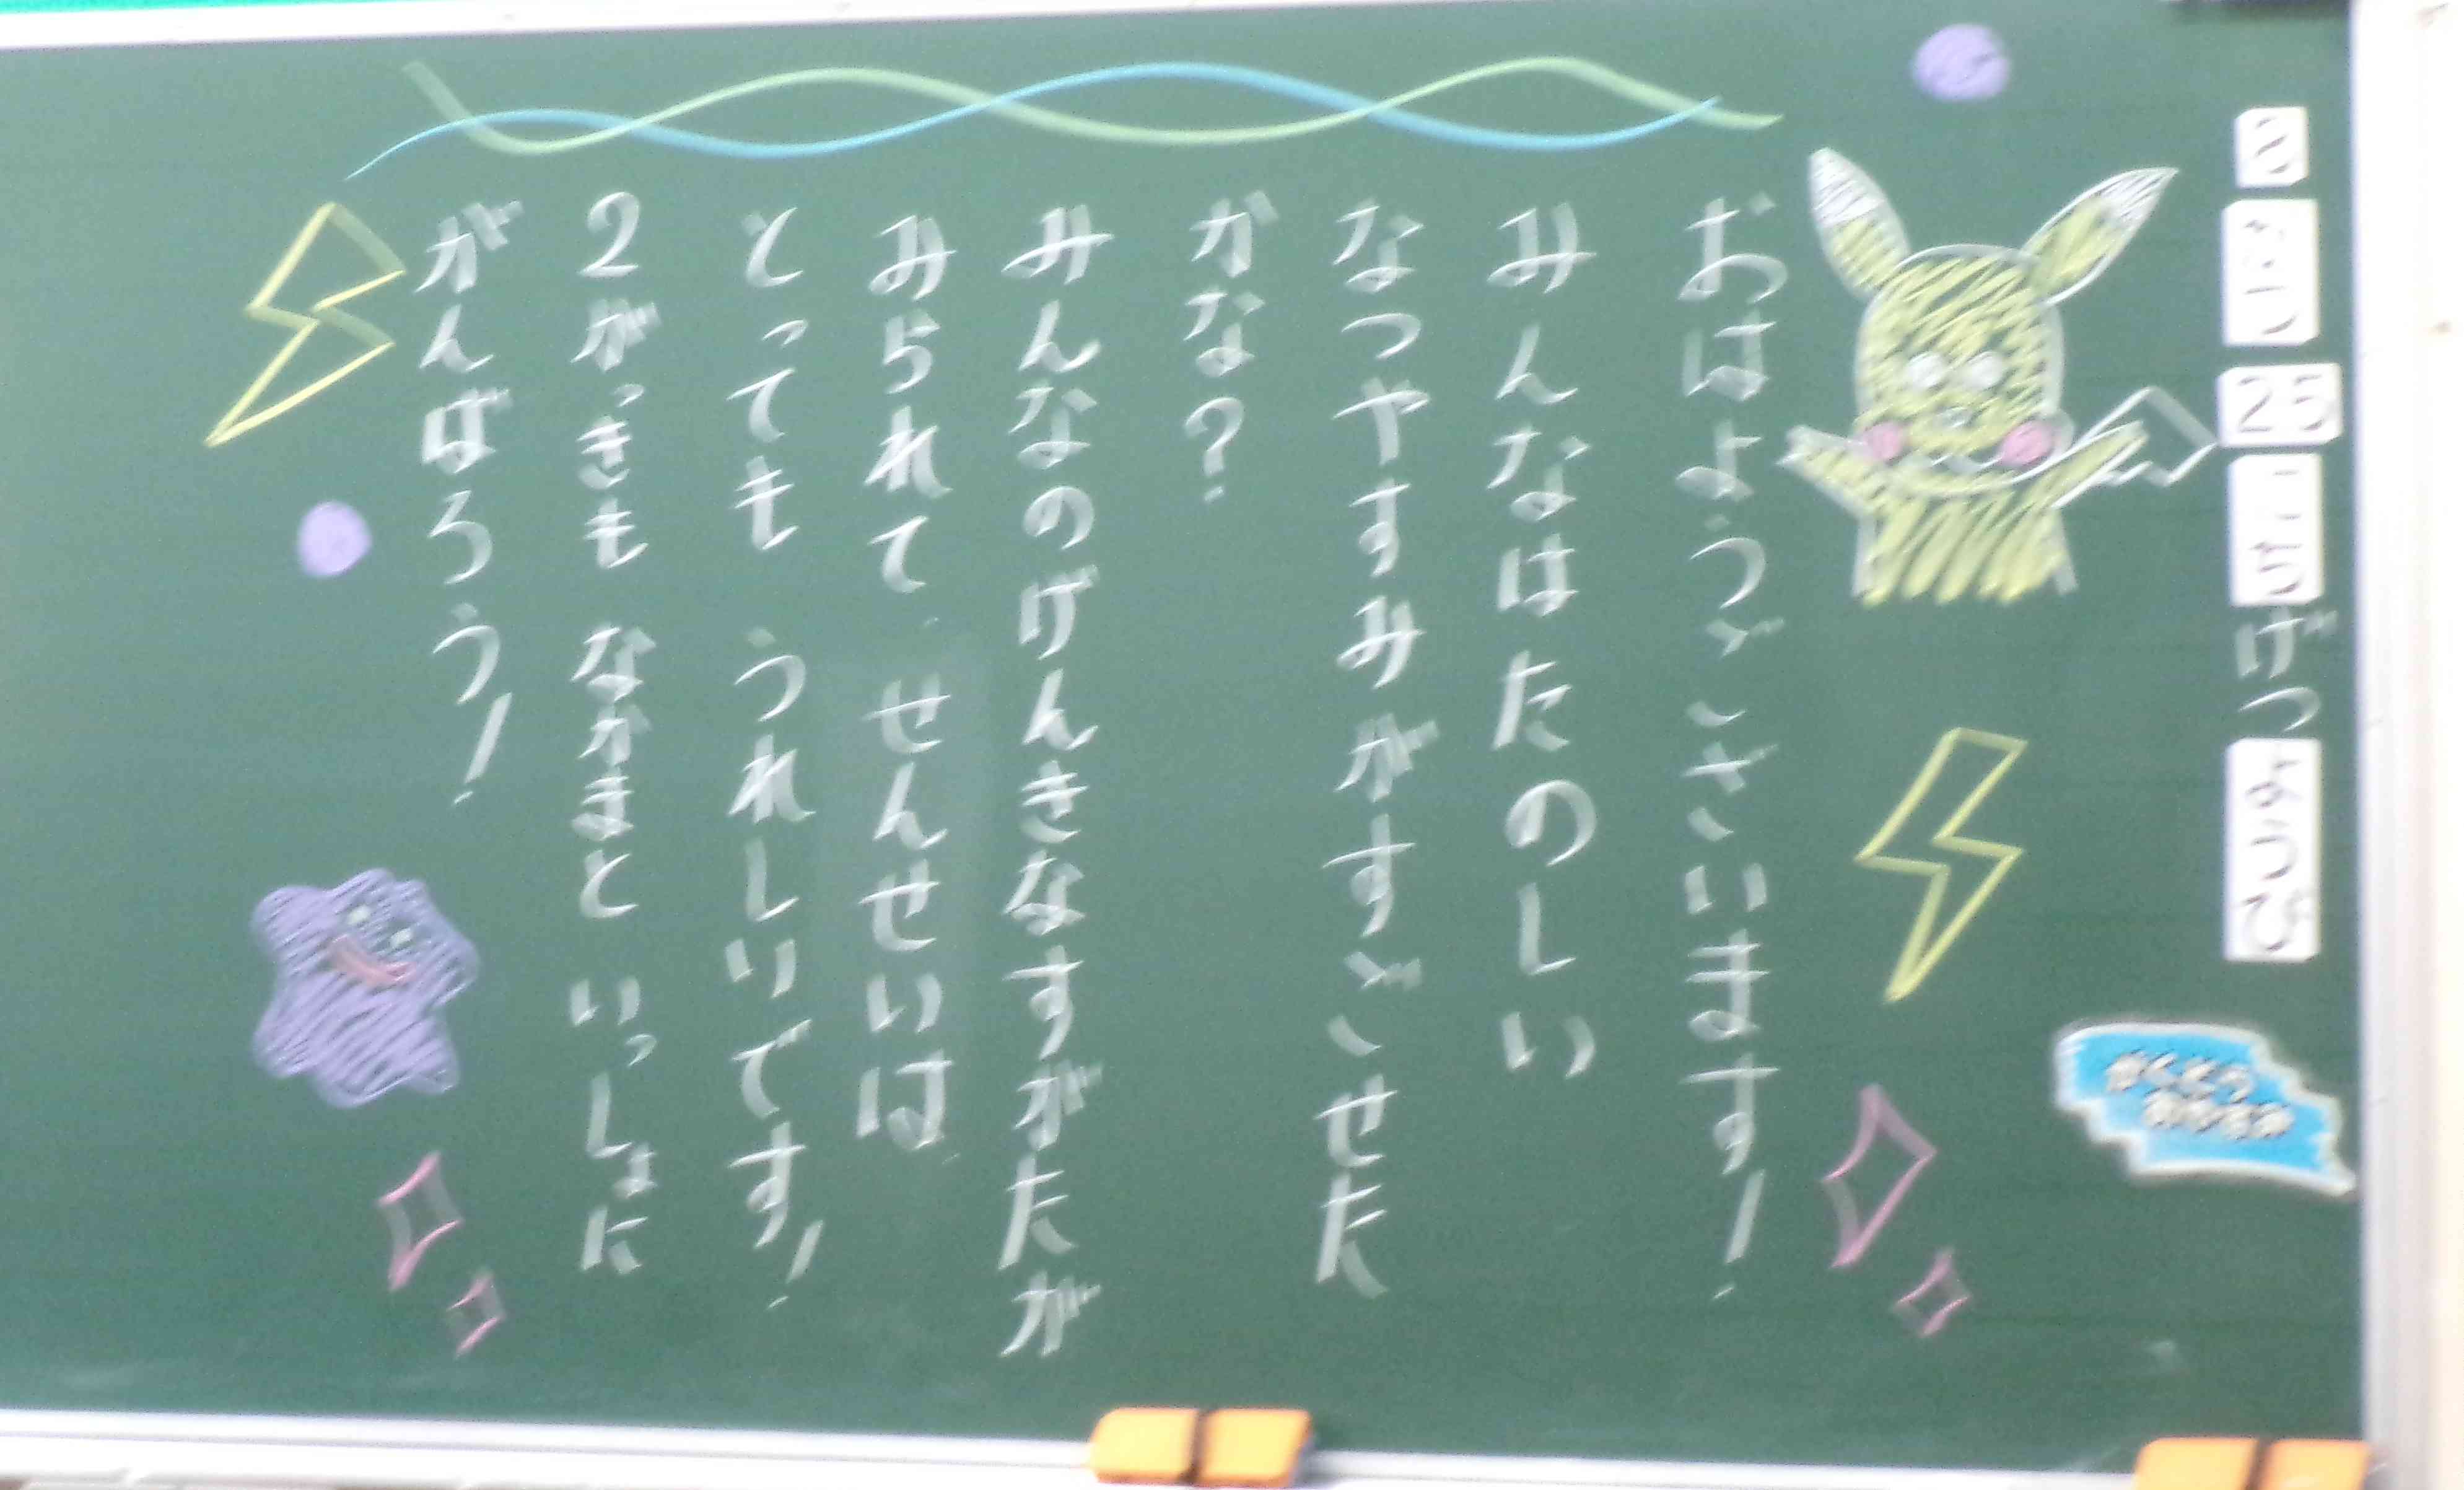 8
がつ
25
にち
げつ
ようび
おはようございます!
みんなはたのしい
なつやすみがすごせた
かな?
みんなのげんきなすがたが
みられて、せんせいは
とっても うれしいです!
2がっきも なかまと いっしょに
がんばろう!